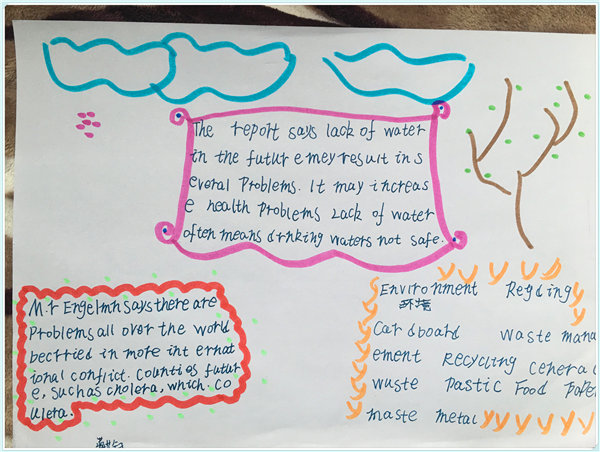 The report says lack of water
in the futur e mey result in s
everal Problems. It may increas
e health Problems Lack of water
often means drnking waters not safe.
Mr Engelmn says there are
Problems all over the world
becrried in more int ernat
ional conflict. Counties futur
e, such as cholera, which. co
uleta.
Environment Regding
环境
Cardboard waste mana
ement RECYCLING Ceneral
waste Pastic Food Paper
maste metal